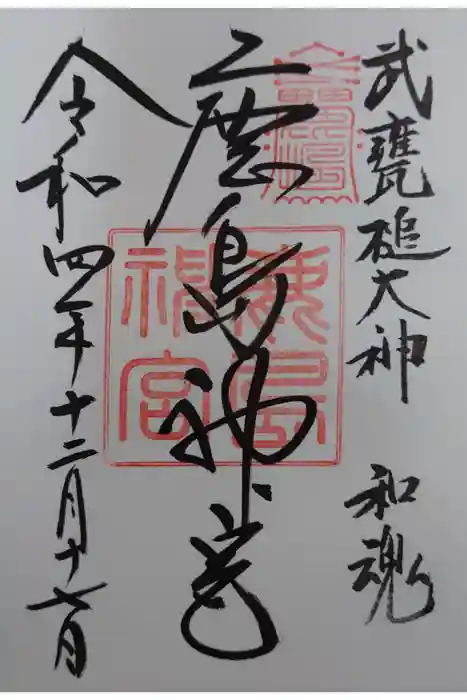 武甕槌大神　和魂
鹿島神宮
鹿島
神宮
令和四年十二月十七日